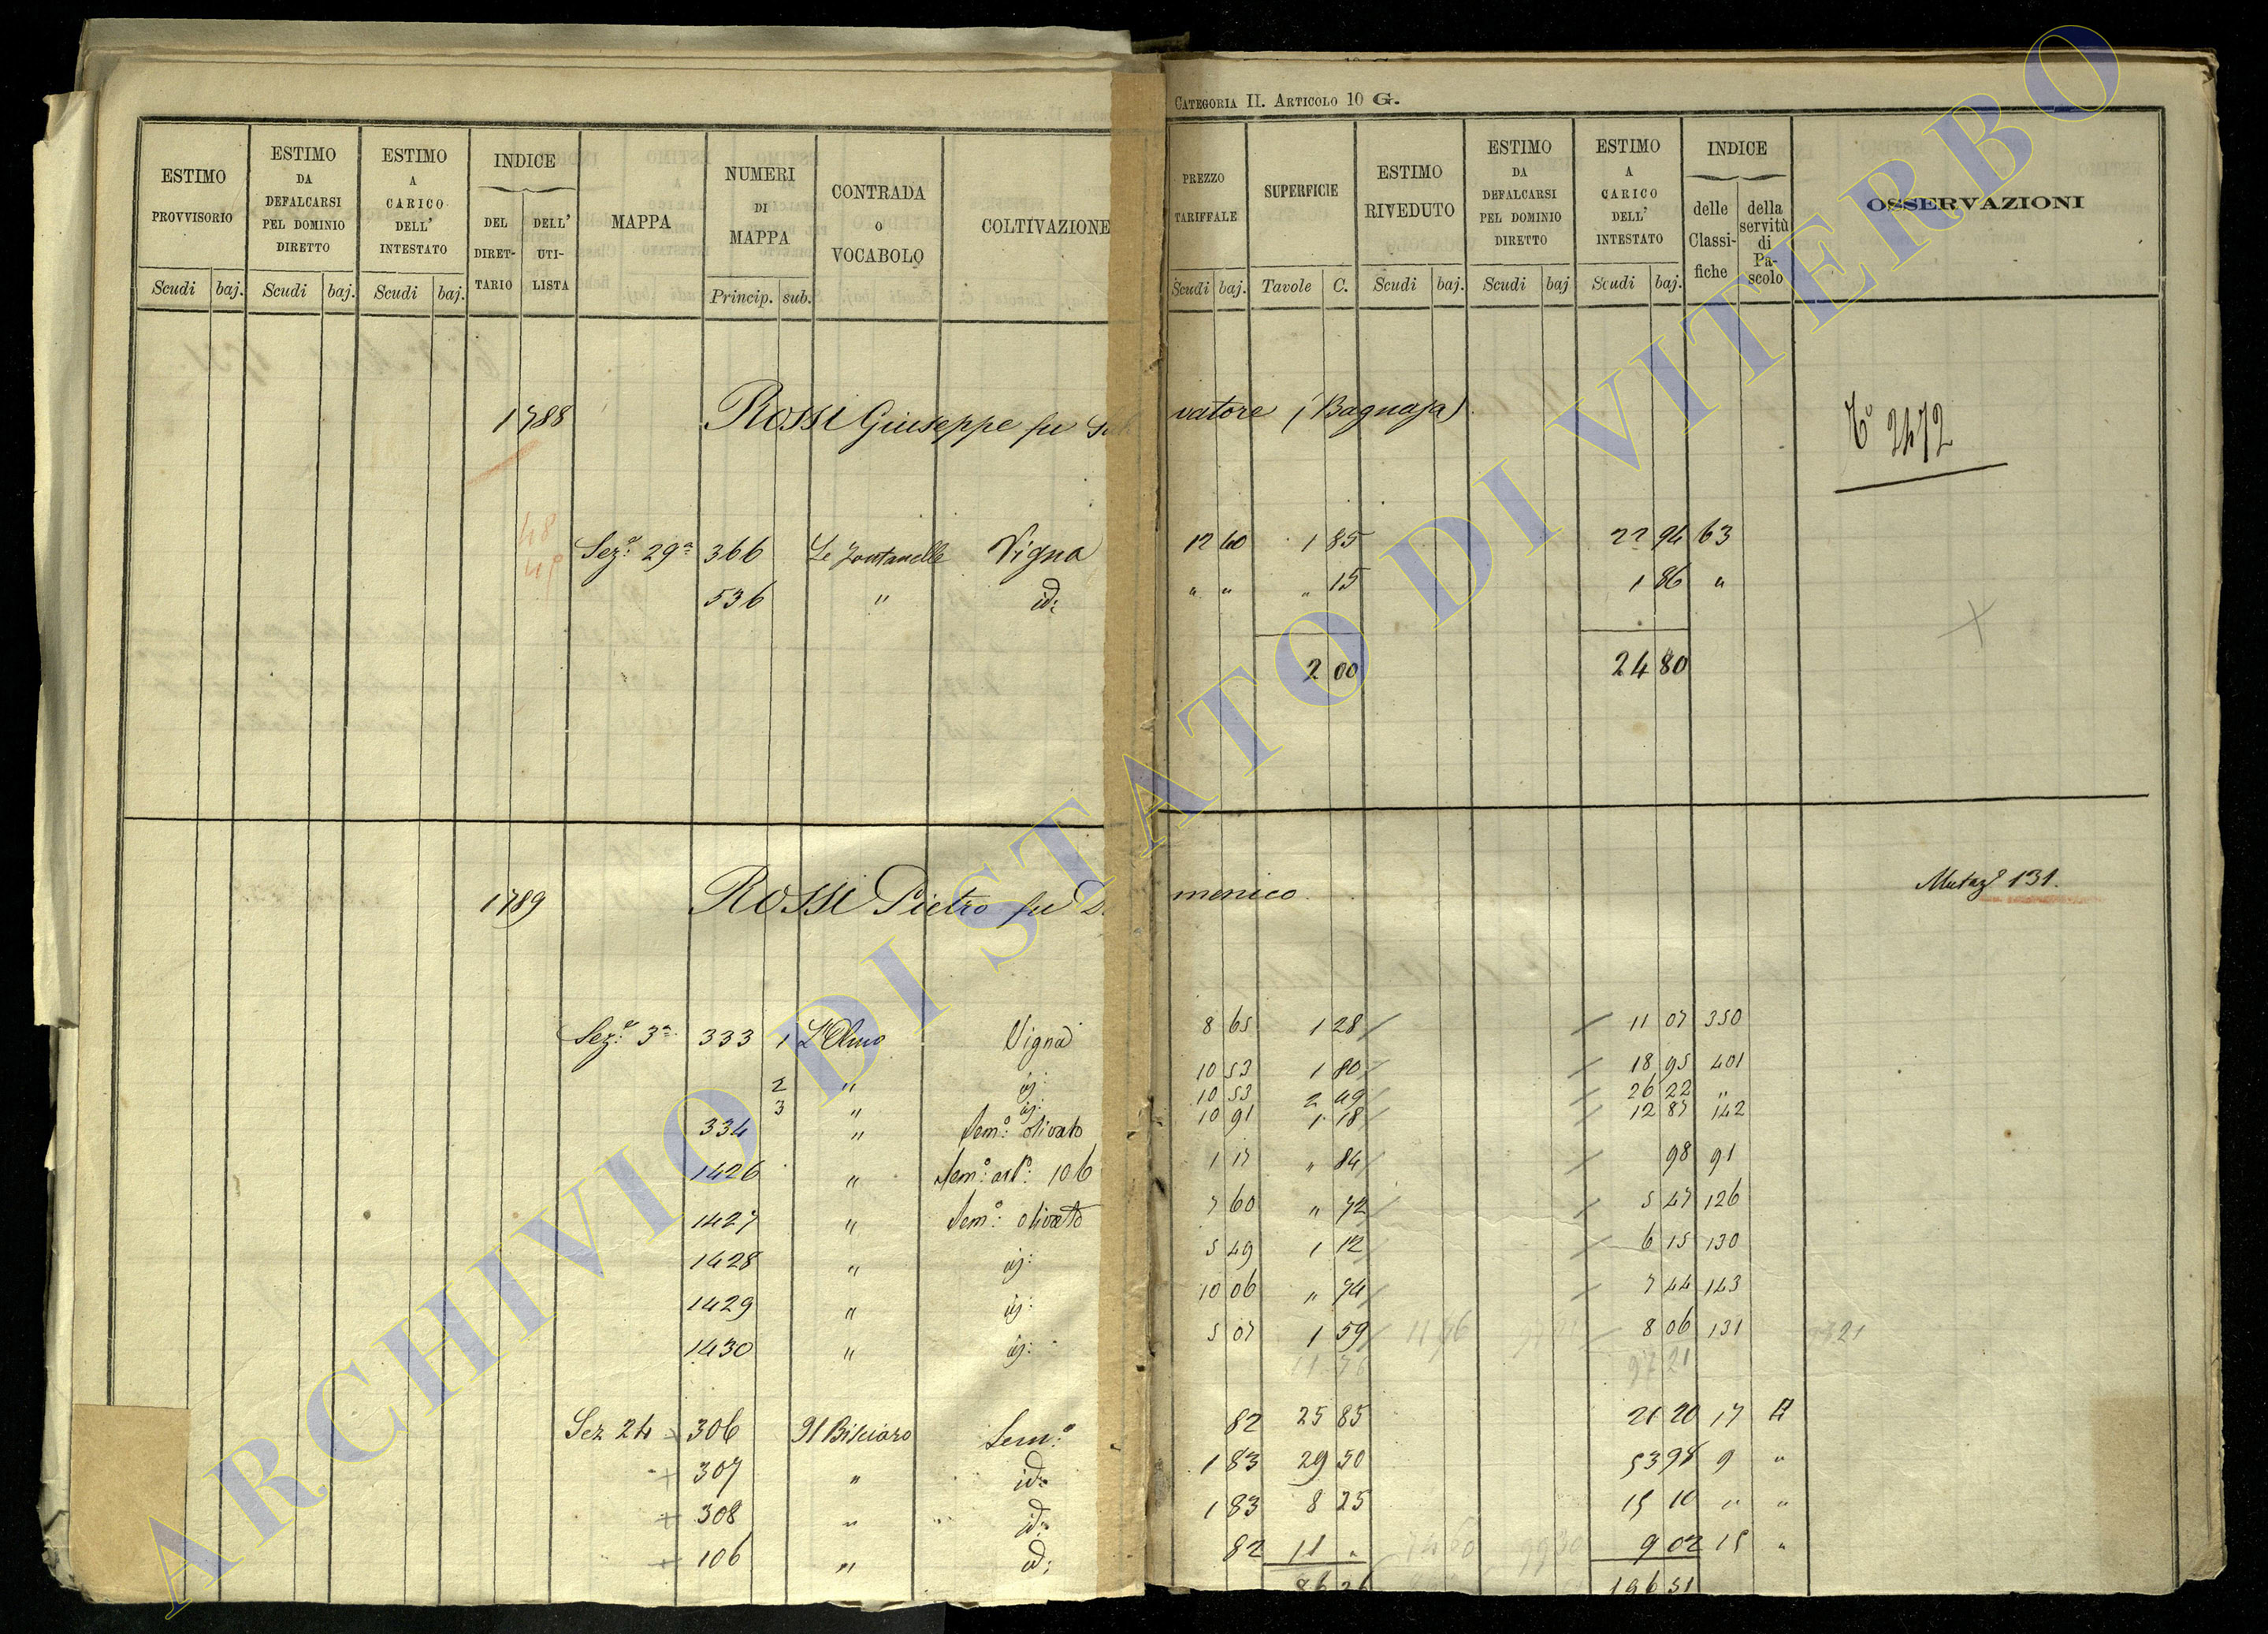 CATEGORIA II. ARTICOLO 10 G.
ESTIMO PROVVISORIO
ESTIMO DA DEFALCARSI PEL DOMINIO DIRETTO
ESTIMO A CARICO DELL' INTESTATO
INDICE
DEL DIRET-TARIO
DELL' UTI-LISTA
MAPPA
NUMERI DI MAPPA
CONTRADA o VOCABOLO
COLTIVAZIONE
PREZZO TARIFFALE
SUPERFICIE
ESTIMO RIVEDUTO
ESTIMO DA DEFALCARSI PEL DOMINIO DIRETTO
ESTIMO A CARICO DELL' INTESTATO
INDICE
delle Classi-fiche
della servitù di Pa-scolo
OSSERVAZIONI
Scudi baj. Scudi baj. Scudi baj. Princip. sub. Scudi baj. Tavole C. Scudi baj. Scudi baj Scudi baj.
1788 Rossi Giuseppe fu Salvatore (Bagnaja)
2472
48
49
Sez.e 29a 366 Le Fontanelle Vigna 12 40 1 85 22 94 63
536 " id: " " " 15 1 86 "
2 00 24 80
1789 Rossi Pietro fu Domenico Mutaz.e 131.
Sez.e 3a 333 1 L'Olmo Vigna 8 65 1 28 11 07 350
2 " id: 10 53 1 80 18 95 401
3 " id: 10 53 2 49 26 22 "
334 " Sem.o olivato 10 91 1 18 12 87 142
1426 " Sem.o art.o 106 1 17 " 84 98 91
1427 " Sem.o olivato 7 60 " 72 5 47 126
1428 " id: 5 49 1 12 6 15 130
1429 " id: 10 06 " 74 7 44 143
1430 " id: 5 07 1 59 8 06 131
11 76 97 21
Sez 24 306 Il Bisciaro Sem.o 82 25 85 21 20 17 A
307 " id: 1 83 29 50 53 98 9 "
308 " id: 1 83 8 25 15 10 " "
106 " id: 82 11 " 9 02 15 "
86 36 196 51
ARCHIVIO DI STATO DI VITERBO